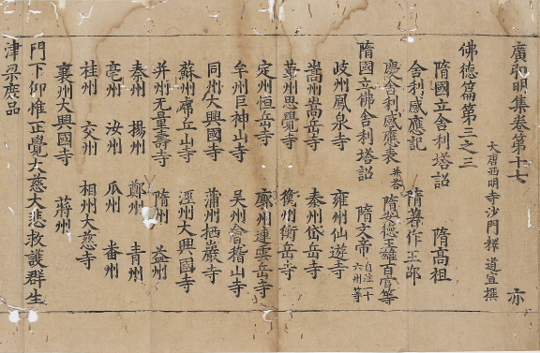 廣弘明集卷第十七
大唐西明寺沙門釋 道宣 撰 亦
佛德篇第三之三
隋國立舍利塔詔 隋高祖
舍利感應記 隋著作王邵
慶舍利感應表 并荅 隋安德王雄百官等
隋國立佛舍利塔詔 隋文帝 自注一十六州等
岐州鳳泉寺 雍州仙遊寺
嵩州嵩岳寺 秦州岱岳寺
華州思覺寺 衡州衡岳寺
定州恒岳寺 廓州連雲岳寺
牟州巨神山寺 吳州會稽山寺
同州大興國寺 蒲州栖巖寺
蘇州虎丘山寺 涇州大興國寺
并州无量壽寺 隋州 益州
秦州 揚州 鄭州 青州
亳州 汝州 瓜州 番州
桂州 交州 相州大慈寺
襄州大興國寺 蔣州
門下仰惟正覺大慈大悲救護群生
津梁庶品